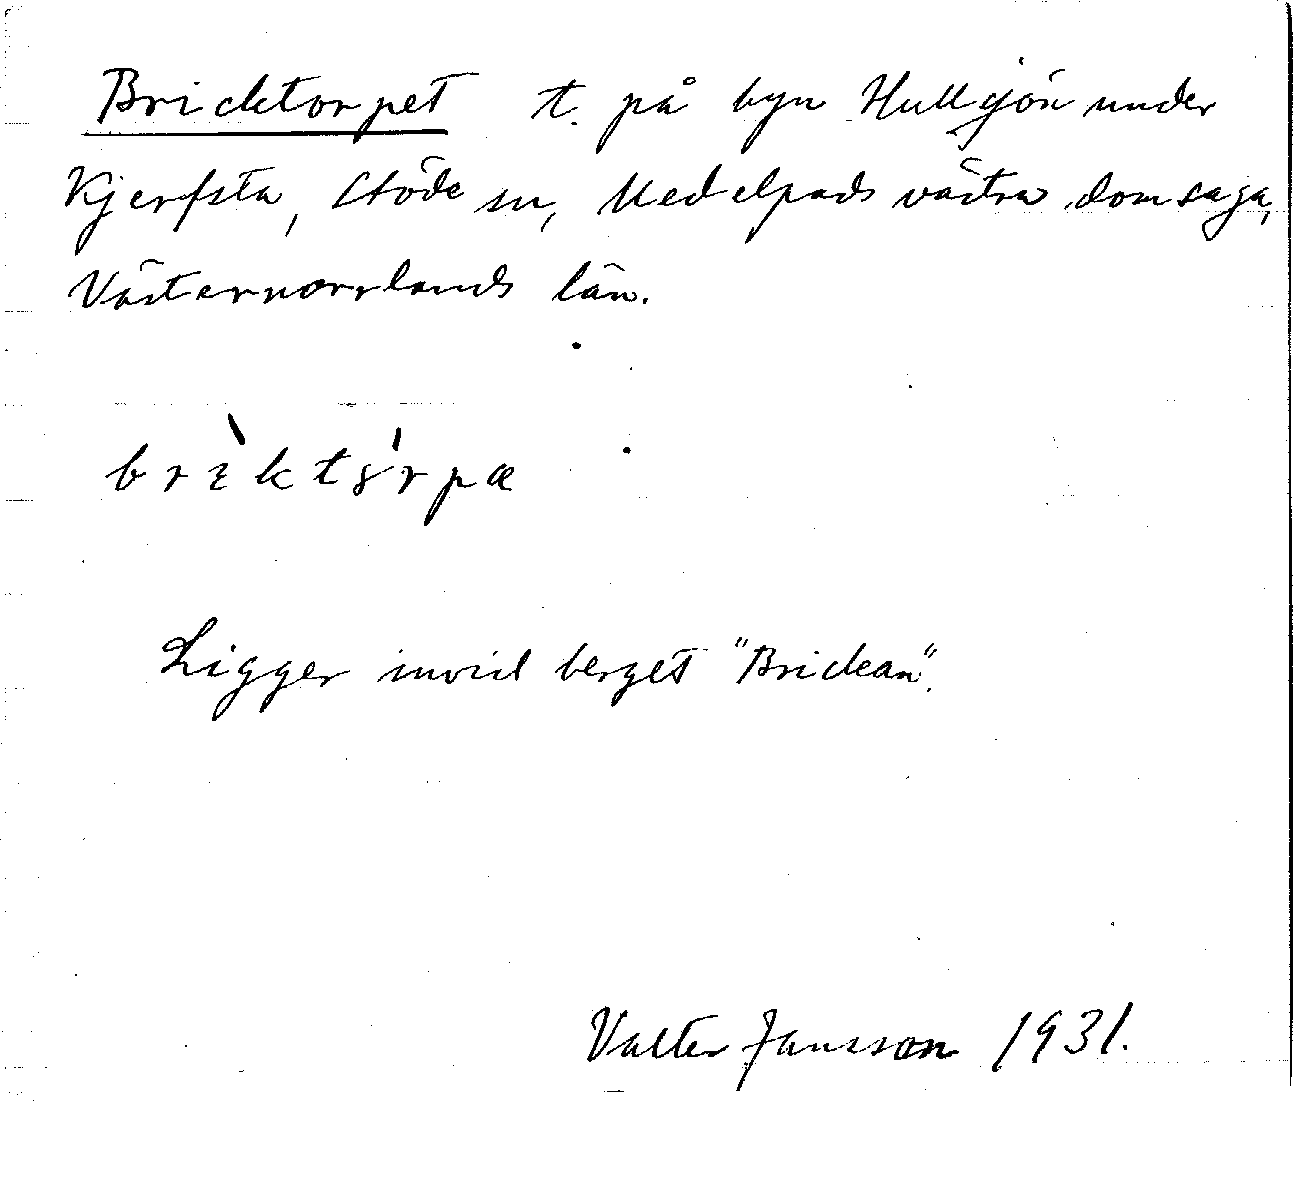 Bricktorpet t. på byn Hullsjön under
Kjerfsta, Stöde sn, Medelpads västra domsaga,
Västernorrlands län.
brìktó'rpæ
Ligger invid berget "Brickan".
Valter Jansson 1931.